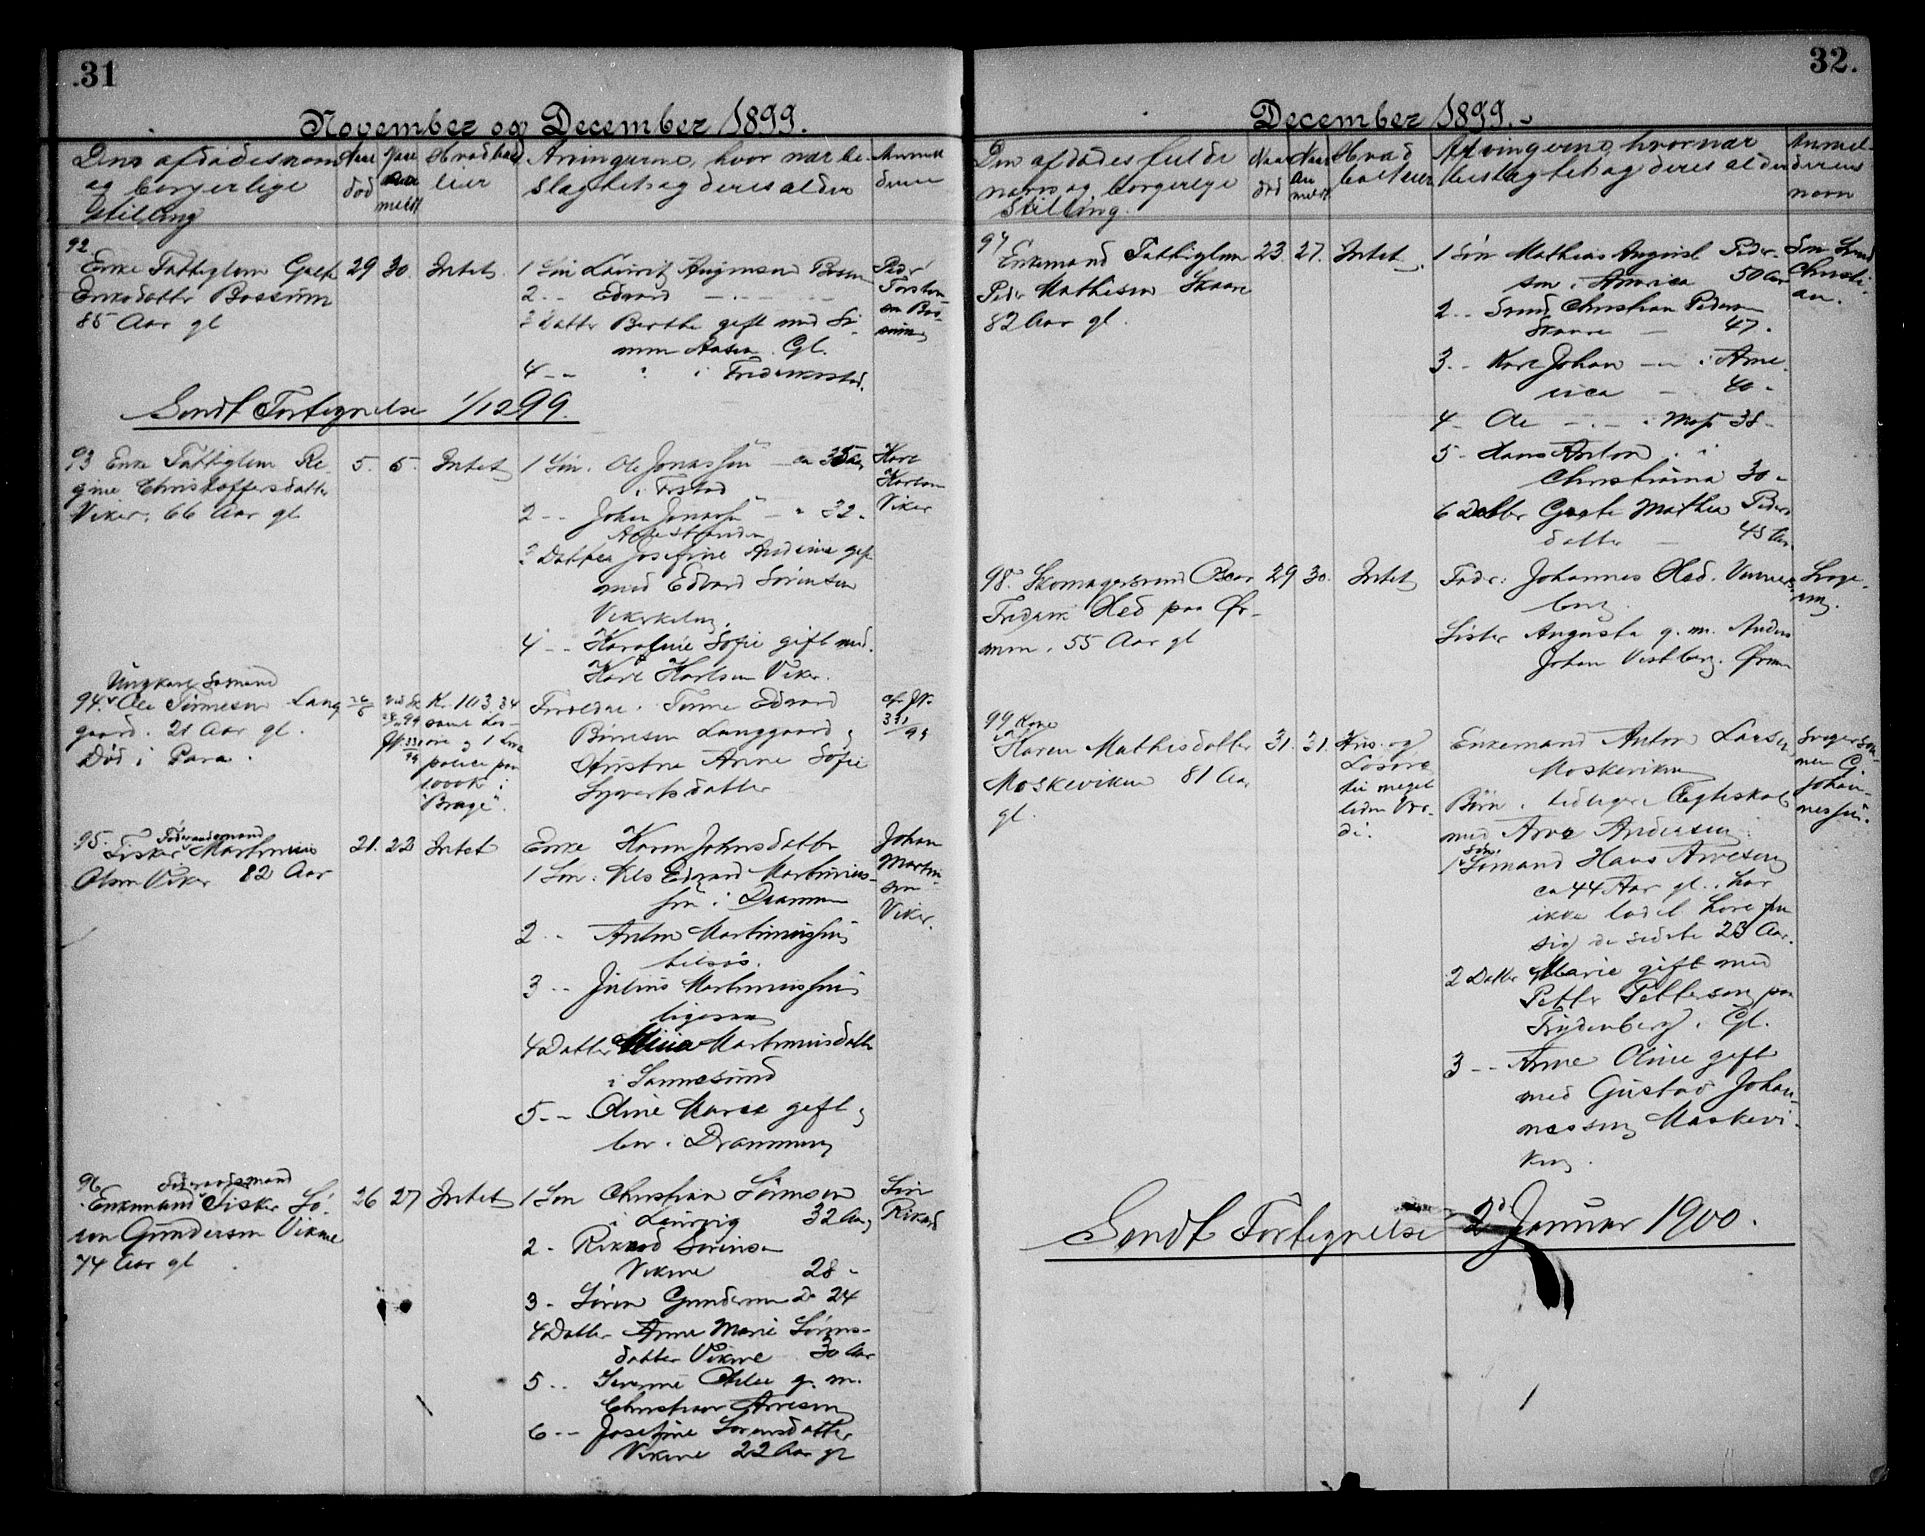 31
November og December 1899.
Den afdødes navn
og borgerlige
Stilling
Naar
død
Naar
anmeldt
Hvad bo
eier
Arvingerne, hvor nær be
slægtet og deres alder
Anmel
deren
92
Enke Fattiglem
Eriksdatter Bossum
85 Aar gl
29
30.
Intet
1 Søn Laurits
2 - - Edvard
3 Datter Berthe gift med Si
mon Aasen. Gl.
4 - - i Frederiksstad.
Peder
Torsten
sen Bos
sum
Sendt Fortegnelse 1/12 99.
93 Enke Fattiglem Re
gine Christoffersdatter
Viker. 66 Aar gl
5.
6.
Intet
1 Søn. Ole Jonassen - ca 35 Aar
i Frstad
2 - - Johan Jonassen - " 32 -
3 Datter Josefine Andrine gift
med Edvard Sørensen
Vikerkilen.
4 - - Karoline Sofie gift med
Karl Karlsen Viker.
Karl
Karlsen
Viker
Ungkarl Sømand
94. Ole Tørnesen Lang
gaard. 21 Aar gl.
Død i Para.
Kr. 103,34
samt Løs-
øre og 1 Livs
police paa
1000 Kr i
"Brage".
Forældre. Edvard
Langgaard
Anne Sofie
Syvertsdatter
331/99
95. Føderaadsmand
Fisker Martinius
Olsen Viker 82 Aar
21.
22
Intet
Enke Karen Johnsdatter
1 Søn. Nils Edvard Martinius-
sen i Drammen
2 - - Anton Martiniussen
tilsøs.
3 - - Julius Martiniussen
ligesaa
4 Datter Mina Martiniusdatter
i Sannesund
5 - - Oline Marie gift
bor i Drammen
Johan
Martin
sen
Viker.
96 Føderaadsmand
Enkemand Fisker Sø-
ren Gundersen Vikene
74 Aar gl
26
27
Intet
1 Søn Christian Sørensen
i Laurvig 32 Aar
2 - Rikard Sørensen
Vikene 28 -
3 - Søren Gundersen do 24
4 Datter Anne Marie Sørens-
datter Vikene 30 Aar
5 - - Severine g. m.
Christian Arnesen
6 - - Josefine Sørensdatter
Vikene 22 Aar gl
Søn
Rikard
32.
December 1899.
Den afdødes fulde
navn og borgerlige
Stilling.
Naar
død
Naar
an
meldt
Hvad
boet eier
Arvingerne, hvor nær
beslægtet og deres alder
Anmel-
derens
navn
97 Enkemand Fattiglem
Peder Mathisen Skaare
82 Aar gl.
23
27.
Intet
1 Søn Mathias August Peder-
sen i Amerika 50 Aar
2 - - Svend Christian Pedersen
Skaare - 47 -
3 - - Karl Johan - - i Ame
rica - 40 -
4 - Ole - - - i Moss 38 -
5 - Hans Anton i
Christiania 30 -
6 Datter Grethe Mathea Peders
datter - 45 Aar
Søn Svend
Christi-
an.
98. Skomagersvend Oscar
Fredrik Hed paa Ør-
men. 55 Aar gl
29
30.
Intet
Fader: Johannes Hed. Venners
borg.
Søster Augusta g. m. Anders
Johan Vestberg. Ørmen
Svoge-
ren.
99 Kone
Karen Mathisdatter
Moskeviken 81 Aar
gl.
31.
31.
Hus og
Løsøre
til meget
liden Vær-
di.
Enkemand Anton Larsen
Moskeviken
Børn i tidligere Ægteskab
med Arne Andersen
Søn.
1 Sømand Hans Arnesen
ca 44 Aar gl., har
ikke ladet høre fra
sig de sidste 23 Aar.
2 Datter Marie gift med
Petter Pettersen paa
Frydenberg. Gl.
3 - - Anne Oline gift
med Gustav Johan-
nessen Moskevi-
ken.
Svigersøn-
nen G.
Johan-
nessen.
Sendt Fortegnelse 2 Januar 1900.